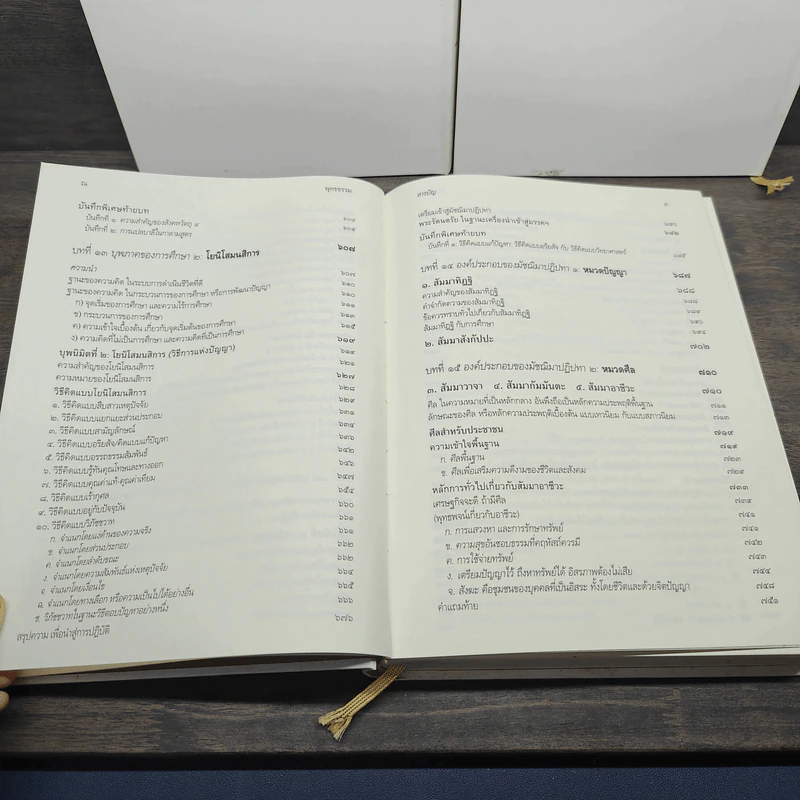 ณ พุทธธรรม
บันทึกพิเศษท้ายบท
บันทึกที่ ๑: ความสำคัญของสังคหวัตถุ ๔ ๖๐๓
บันทึกที่ ๒: การแปลบาลีในกาลามสูตร ๖๐๔
บทที่ ๑๓ บุพภาคของการศึกษา ๒: โยนิโสมนสิการ ๖๐๗
ความนำ ๖๐๗
ฐานะของความคิด ในระบบการดำเนินชีวิตที่ดี ๖๐๗
ฐานะของความคิด ในกระบวนการของการศึกษา หรือการพัฒนาปัญญา ๖๑๐
ก) จุดเริ่มของการศึกษา และความไร้การศึกษา ๖๑๐
ข) กระบวนการของการศึกษา ๖๑๓
ค) ความเข้าใจเบื้องต้น เกี่ยวกับจุดเริ่มต้นของการศึกษา ๖๑๕
ง) ความคิดที่ไม่เป็นการศึกษา และความคิดที่เป็นการศึกษา
บุพนิมิตที่ ๒: โยนิโสมนสิการ (วิธีการแห่งปัญญา) ๖๑๙
ความสำคัญของโยนิโสมนสิการ ๖๑๙
ความหมายของโยนิโสมนสิการ ๖๒๑
วิธีคิดแบบโยนิโสมนสิการ ๖๒๗
๑. วิธีคิดแบบสืบสาวเหตุปัจจัย ๖๒๘
๒. วิธีคิดแบบแยกแยะส่วนประกอบ ๖๒๙
๓. วิธีคิดแบบสามัญลักษณ์ ๖๓๑
๔. วิธีคิดแบบอริยสัจ/คิดแบบแก้ปัญหา ๖๓๔
๕. วิธีคิดแบบอรรถธรรมสัมพันธ์ ๖๓๖
๖. วิธีคิดแบบรู้ทันคุณโทษและทางออก ๖๔๒
๗. วิธีคิดแบบคุณค่าแท้-คุณค่าเทียม ๖๔๖
๘. วิธีคิดแบบเร้ากุศล ๖๔๗
๙. วิธีคิดแบบอยู่กับปัจจุบัน ๖๕๔
๑๐. วิธีคิดแบบวิภัชชวาท ๖๖๐
ก. จำแนกโดยแง่ด้านของความจริง ๖๖๑
ข. จำแนกโดยส่วนประกอบ ๖๖๒
ค. จำแนกโดยลำดับขณะ ๖๖๒
ง. จำแนกโดยความสัมพันธ์แห่งเหตุปัจจัย ๖๖๔
จ. จำแนกโดยเงื่อนไข ๖๖๕
ฉ. จำแนกโดยทางเลือก หรือความเป็นไปได้อย่างอื่น ๖๖๖
ช. วิภัชชวาทในฐานะวิธีตอบปัญหาอย่างหนึ่ง
สรุปความ เพื่อนำสู่การปฏิบัติ ๖๗๖
สารบัญ
เตรียมเข้าสู่มัชฌิมาปฏิปทา
พระรัตนตรัย ในฐานะเครื่องนำเข้าสู่มรรคฯ
บันทึกพิเศษท้ายบท ๖๘๒
บันทึกที่ ๑: วิธีคิดแบบแก้ปัญหา: วิธีคิดแบบอริยสัจ กับ วิธีคิดแบบวิทยาศาสตร์
บทที่ ๑๔ องค์ประกอบของมัชฌิมาปฏิปทา ๑: หมวดปัญญา ๖๘๗
๑. สัมมาทิฏฐิ ๖๘๘
ความสำคัญของสัมมาทิฏฐิ ๖๘๘
คำจำกัดความของสัมมาทิฏฐิ ๖๘๙
ข้อควรทราบทั่วไปเกี่ยวกับสัมมาทิฏฐิ ๖๙๐
สัมมาทิฏฐิ กับการศึกษา ๖๙๔
๒. สัมมาสังกัปปะ ๗๐๒
บทที่ ๑๕ องค์ประกอบของมัชฌิมาปฏิปทา ๒: หมวดศีล ๗๑๐
๓. สัมมาวาจา ๔. สัมมากัมมันตะ ๕. สัมมาอาชีวะ ๗๑๐
ศีล ในความหมายที่เป็นหลักกลาง อันพึงถือเป็นหลักความประพฤติพื้นฐาน ๗๑๑
ลักษณะของศีล หรือหลักความประพฤติเบื้องต้น แบบเทวนิยม กับแบบสภาวนิยม ๗๑๓
ศีลสำหรับประชาชน ๗๑๙
ความเข้าใจพื้นฐาน ๗๑๙
ก. ศีลพื้นฐาน ๗๒๓
ข. ศีลเพื่อเสริมความดีงามของชีวิตและสังคม ๗๒๙
หลักการทั่วไปเกี่ยวกับสัมมาอาชีวะ ๗๓๓
เศรษฐกิจจะดี ถ้ามีศีล ๗๓๙
(พุทธพจน์เกี่ยวกับอาชีวะ) ๗๔๑
ก. การแสวงหา และการรักษาทรัพย์ ๗๔๑
ข. ความสุขอันชอบธรรมที่คฤหัสถ์ควรมี ๗๔๒
ค. การใช้จ่ายทรัพย์ ๗๔๓
ง. เตรียมปัญญาไว้ ถึงหาทรัพย์ได้ อิสรภาพต้องไม่เสีย ๗๔๔
จ. สังฆะ คือชุมชนของบุคคลที่เป็นอิสระ ทั้งโดยชีวิตและด้วยจิตปัญญา ๗๔๘
คำแถมท้าย ๗๕๑